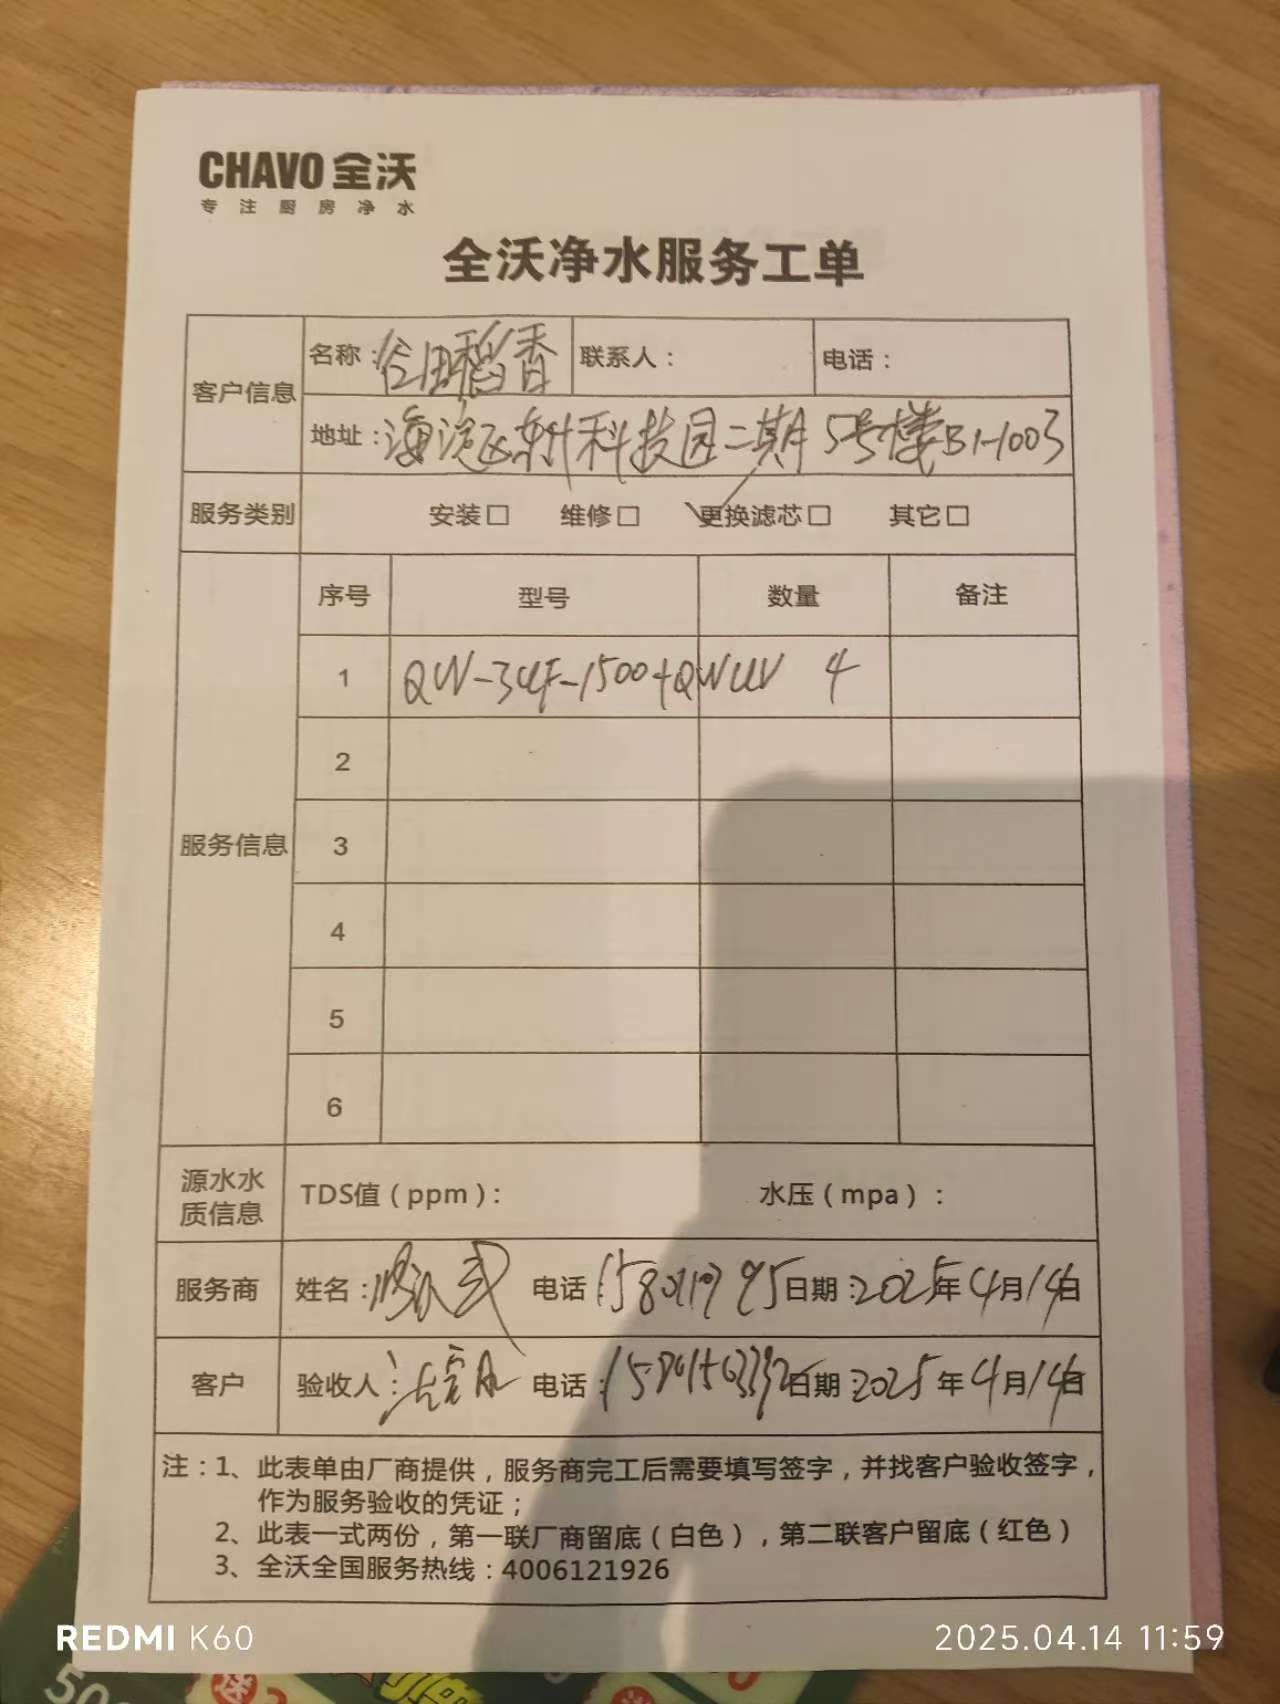 CHAVO 全沃
专注厨房净水
全沃净水服务工单
客户信息
名称：谷田稻香 联系人： 电话：
地址：海淀区东升科技园二期5号楼B1-1003
服务类别 安装□ 维修□ 更换滤芯□ 其它□
服务信息
序号 型号 数量 备注
1 QW-3UF-1500+QWUV 4
2
3
4
5
6
源水水质信息 TDS值（ppm）： 水压（mpa）：
服务商 姓名： 电话： 日期：2025年4月14日
客户 验收人： 电话： 日期：2025年4月14日
注：1、此表单由厂商提供，服务商完工后需要填写签字，并找客户验收签字，
作为服务验收的凭证；
2、此表一式两份，第一联厂商留底（白色），第二联客户留底（红色）
3、全沃全国服务热线：4006121926
REDMI K60
2025.04.14 11:59
50
送